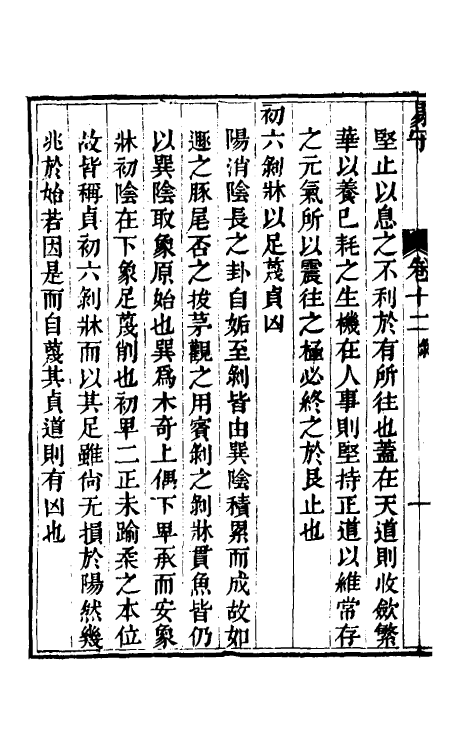 易守 卷十二 剝 一
堅止以息之不利於有所往也蓋在天道則收斂繁
華以養已耗之生機在人事則堅持正道以維常存
之元氣所以震往之極必終之於艮止也
初六剝牀以足蔑貞凶
陽消陰長之卦自姤至剝皆由巽陰積累而成故如
遯之豚尾否之拔茅觀之用賓剝之剝牀貫魚皆仍
以巽陰取象原始也巽爲木奇上偶下卑承而安象
牀初陰在下象足蔑削也初卑二正未踰柔之本位
故皆稱貞初六剝牀而以其足雖尙无損於陽然幾
兆於始若因是而自蔑其貞道則有凶也